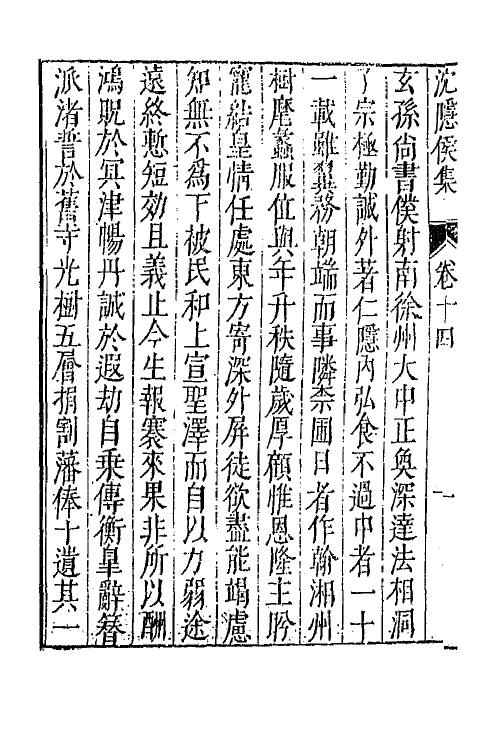 沈隱侯集 卷十四 一
玄孫尙書僕射南徐州大中正奐深達法相洞
了宗極勤誠外著仁隱內弘食不過中者一十
一載雖翼務朝端而事隣柰圃日者作翰湘州
樹麾蠡服位與年升秩隨歲厚顧惟恩隆主盻
寵結皇情任處東方寄深外屏徒欲盡能竭慮
知無不爲下被民和上宣聖澤而自以力弱途
遠終慙短効且義止今生報褰來果非所以酬
鴻貺於冥津暢丹誠於遐劫自乘傳衡皐辭簪
派渚誓於舊寺光樹五層捐割藩俸十遺其一